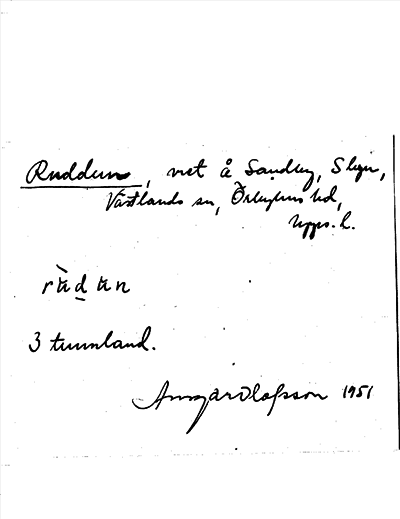 Ruddun, vret å Sandby, Slyn,
Västlands sn, Örbyhus hd,
Upps. l.
3 tunnland.
Ansgar Olofsson 1951